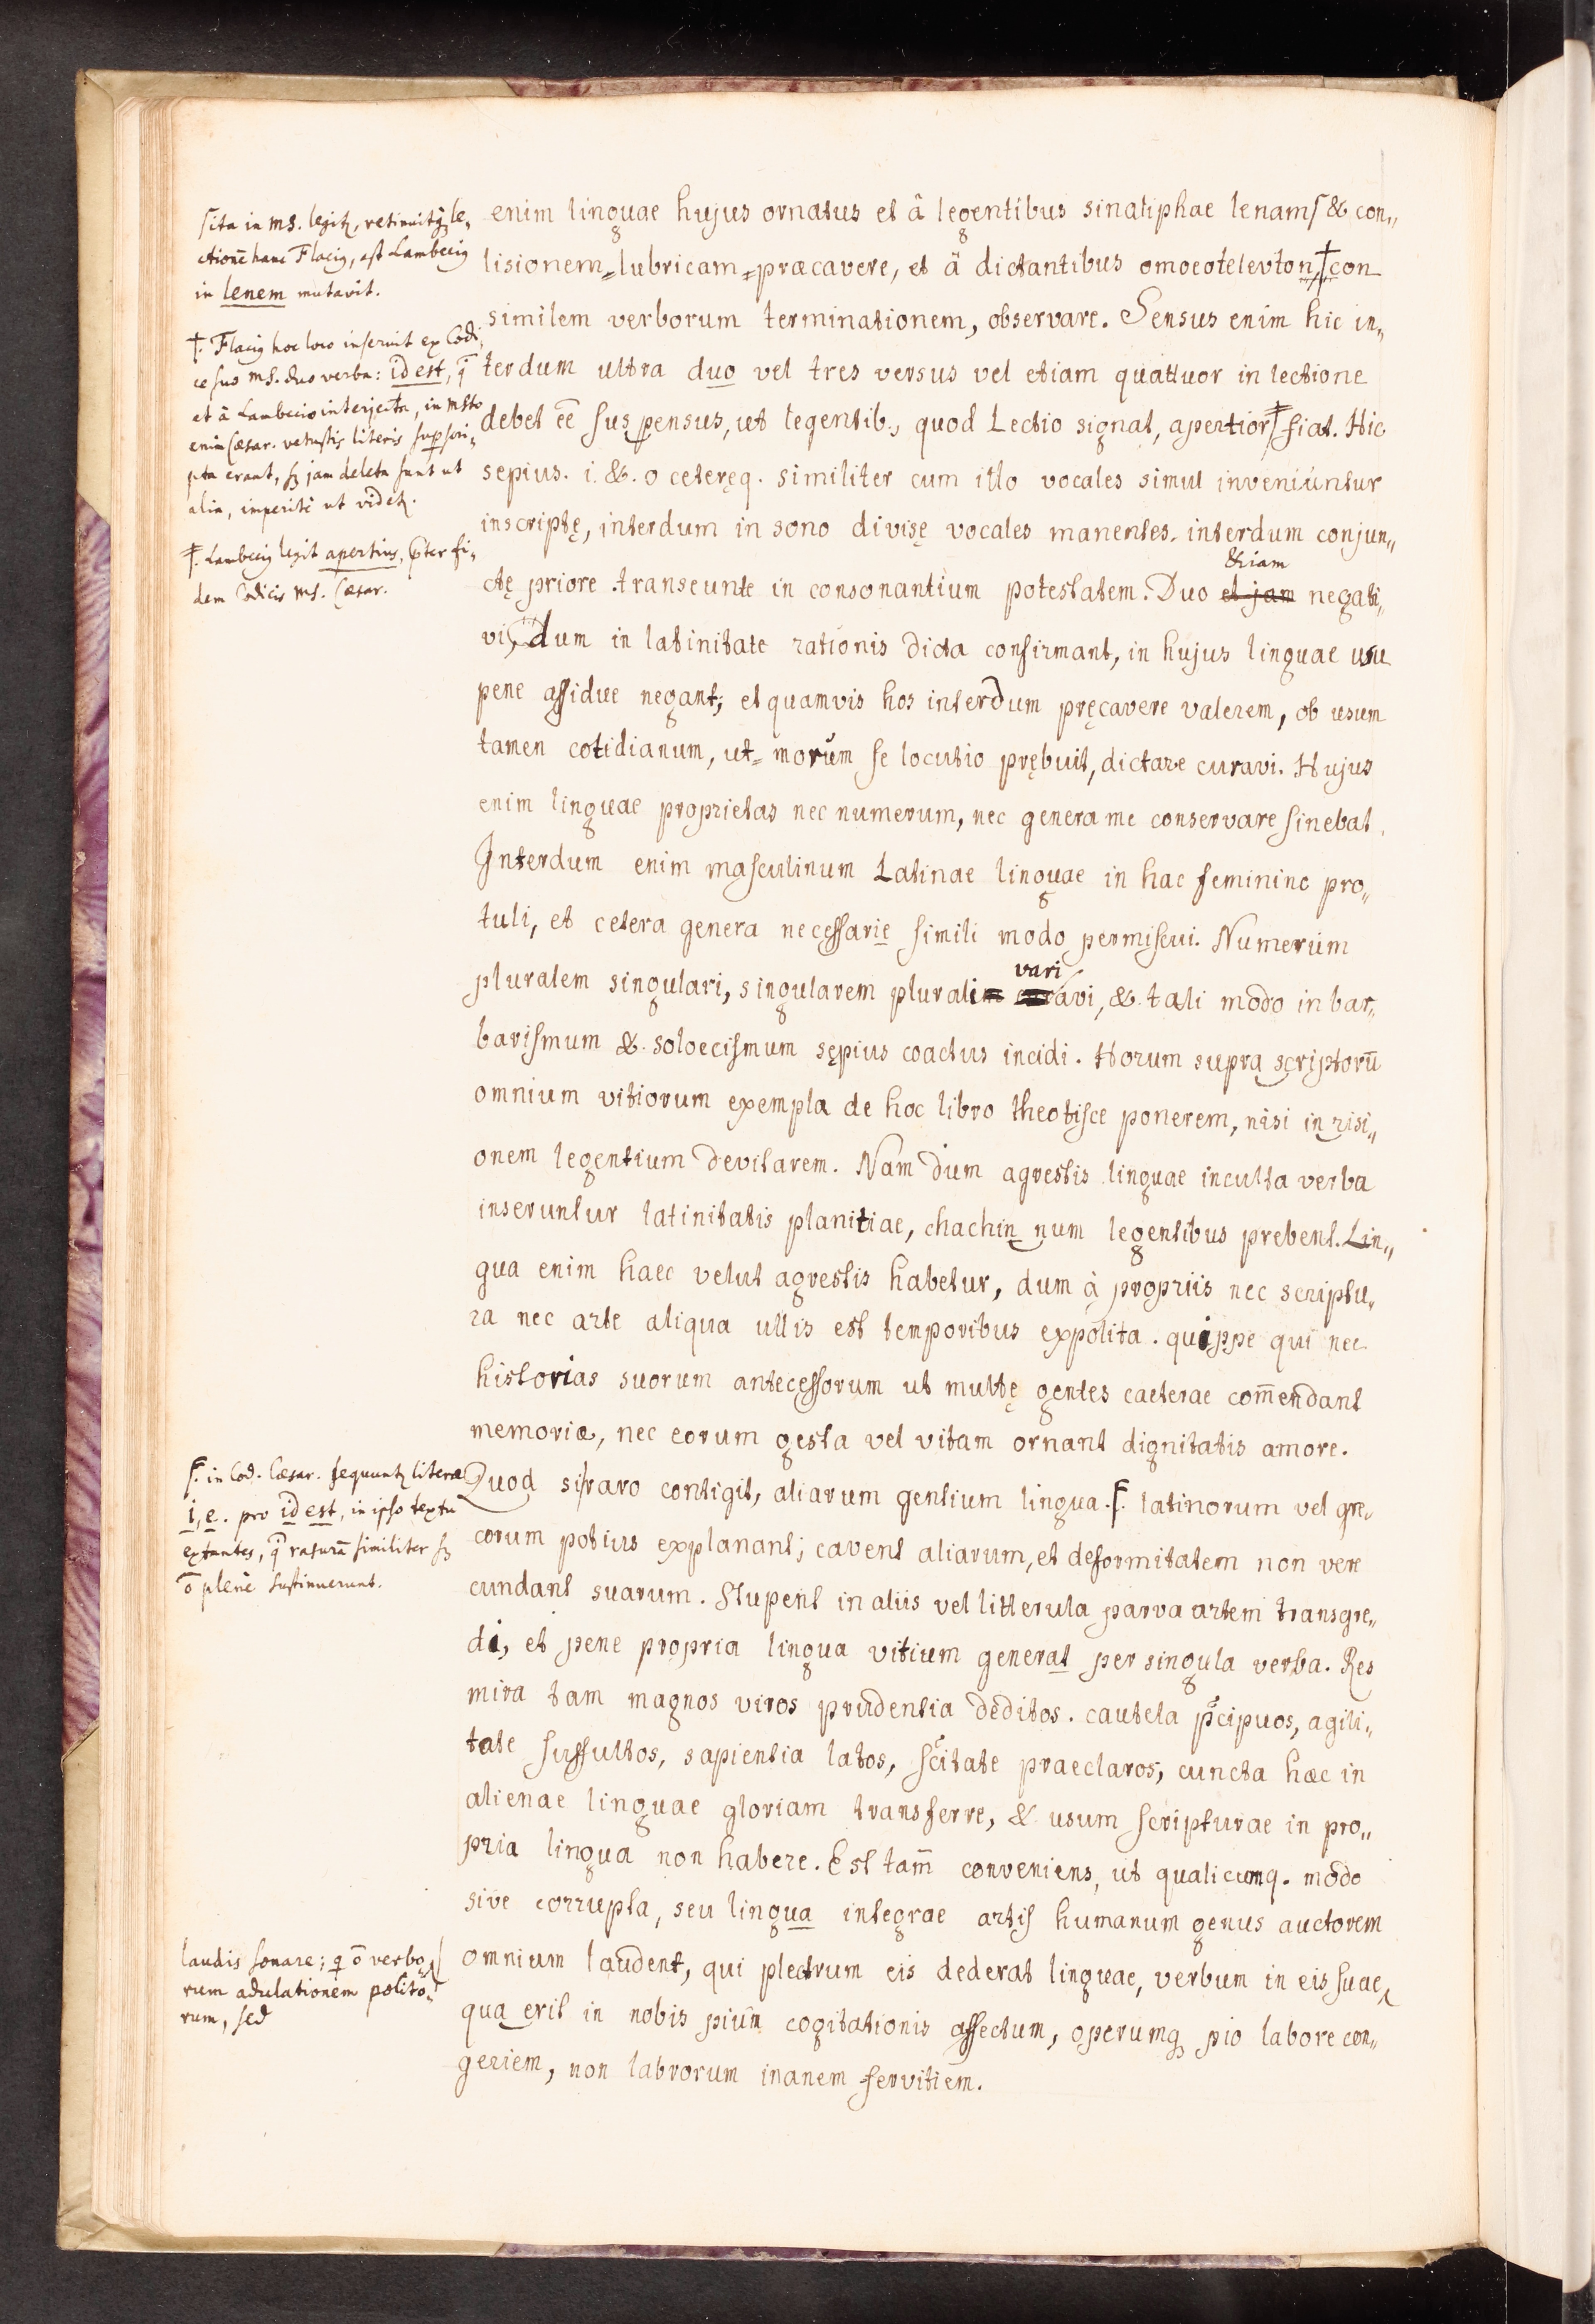 enim linguae hujus ornatus et â legentibus sinaliphae lenamſ & con„
lisionem„lubricam„præcavere, et â dictantibus omoeotelevton,†con
similem verborum terminationem, observare. Sensus enim hic in„
terdum ultra duo vel tres versus vel etiam quattuor in lectione
debet eē suspensus, ut legentib., quod Lectio signat, apertior‡ fiat. Hic
sepius. i. &. o ceteręq. similiter cum illo vocales simul inveniúntur
inscriptę, interdum in sono divisę vocales manentes, interdum conjun„
&iam
ctę priore transeunte in consonantium potestatem. Duo et jam negati„
vi, dum in latinitate rationis dicta confirmant, in hujus linguae usu
pene aſſidue negant; et quamvis hos interdum pręcavere valerem, ob usum
tamen cotidianum, ut„ morúm se locutio prębuit, dictare curavi. Hujus
enim linguae proprietas nec numerum, nec genera me conservare sinebat.
Interdum enim maſculinum Latinae linguae in hac feminino pro„
tuli, et cetera genera neceſſarie simili modo permiscui. Numerúm
vari
pluralem singulari, singularem plurali avi, & tali modo in bar„
bariſmum & soloeciſmum sępius coactus incidi. Horum supra scriptorū
omnium vitiorum exempla de hoc libro theotiſce ponerem, nisi inrisi„
onem legentium devitarem. Nam dum agrestis linguae inculta verba
inseruntur latinitatis planitiae, chachinnum legentibus prebent. Lin„
gua enim haec velut agrestis habetur, dum à propriis nec scriptu„
ra nec arte aliqua ullis est temporibus expolita. quippe qui nec
historias suorum anteceſſorum ut multę gentes caeterae com̄endant
memoriæ, nec eorum gesta vel vitam ornant dignitatis amore.
Quod si raro contigit, aliarum gentium lingua.ſ. latinorum vel gre„
corum potius explanant; cavent aliarum, et deformitatem non vere
cundant suarum. Stupent in aliis vel litterula parva artem transgre„
di, et pene propria lingua vitium generat per singula verba. Res
mira tam magnos viros prudentia deditos. cautela p̄cipuos, agili„
tate suffultos, sapientia latos, sc̄itate praeclaros; cuncta hæc in
alienae linguae gloriam transferre, & usum scripturae in pro„
pria lingua non habere. Est tam̄ conveniens, ut qualicumq. modo
sive corrupta, seu lingua integrae artis humanum genus auctorem
omnium laudent, qui plectrum eis dederat linguae, verbum in eis suae
qua erit in nobis pium cogitationis affectum, operumq pio labore con„
geriem, non labrorum inanem servitiem.
sita in ms. legitr, retinuitq le„
ctionē hanc Flacig, ast Lambecig
in lenem mutavit.
†. Flacig hoc loco inseruit ex Codi„
ce suo ms. duo verba: id est, q̄
et â Lambecio interjecta, in msto
enim Cæsar. vetustis literis supscri„
pta erant, sʒ jam deleta sunt ut
alia, imperitè ut videtr.
‡. Lambecig legit apertius, p̄ter fi„
dem Codicis ms. Cæsar.
ſ. in Cod. Cæsar. sequuntr literæ
i, e. pro id est, in ipso textu
extantes, q̄ rasurā similiter sʒ
ō plenè sustinuerunt.
laudis sonare; q ō verbo„
rum adulationem polito„
rum, sed